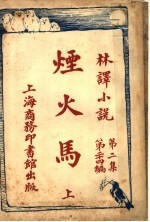 林譯小說
第二集
四編
煙火馬
上
上海商務印書館出版